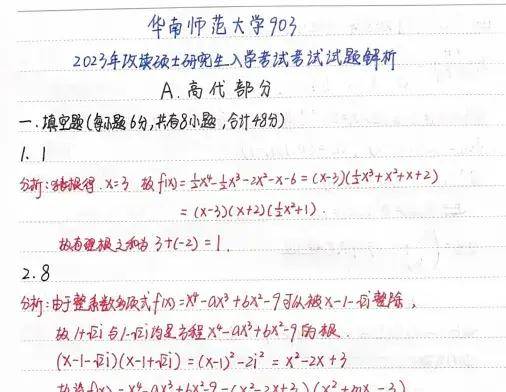 华南师范大学903
2023年攻读硕士研究生入学考试考试试题解析
A.高代部分
一.填空题(每小题6分,共有8小题,合计48分)
1. 1
分析:猜根得.x=3 故f(x)=½x⁴-½x³-2x²-x-6=(x-3)(½x³+x²+x+2)
=(x-3)(x+2)(½x²+1).
故有理根之和为 3+(-2)=1.
2. 8
分析:由于整系数多项式f(x)=x⁴-ax³+bx²-9可以被x-1-√2i整除,
故1+√2i与1-√2i均是方程x⁴-ax³+bx²-9的根.
(x-1-√2i)(x-1+√2i)=(x-1)²-2i²=x²-2x+3
f(x)=x⁴-ax³+bx²-9=(x²-2x+3)(x²+mx-3)